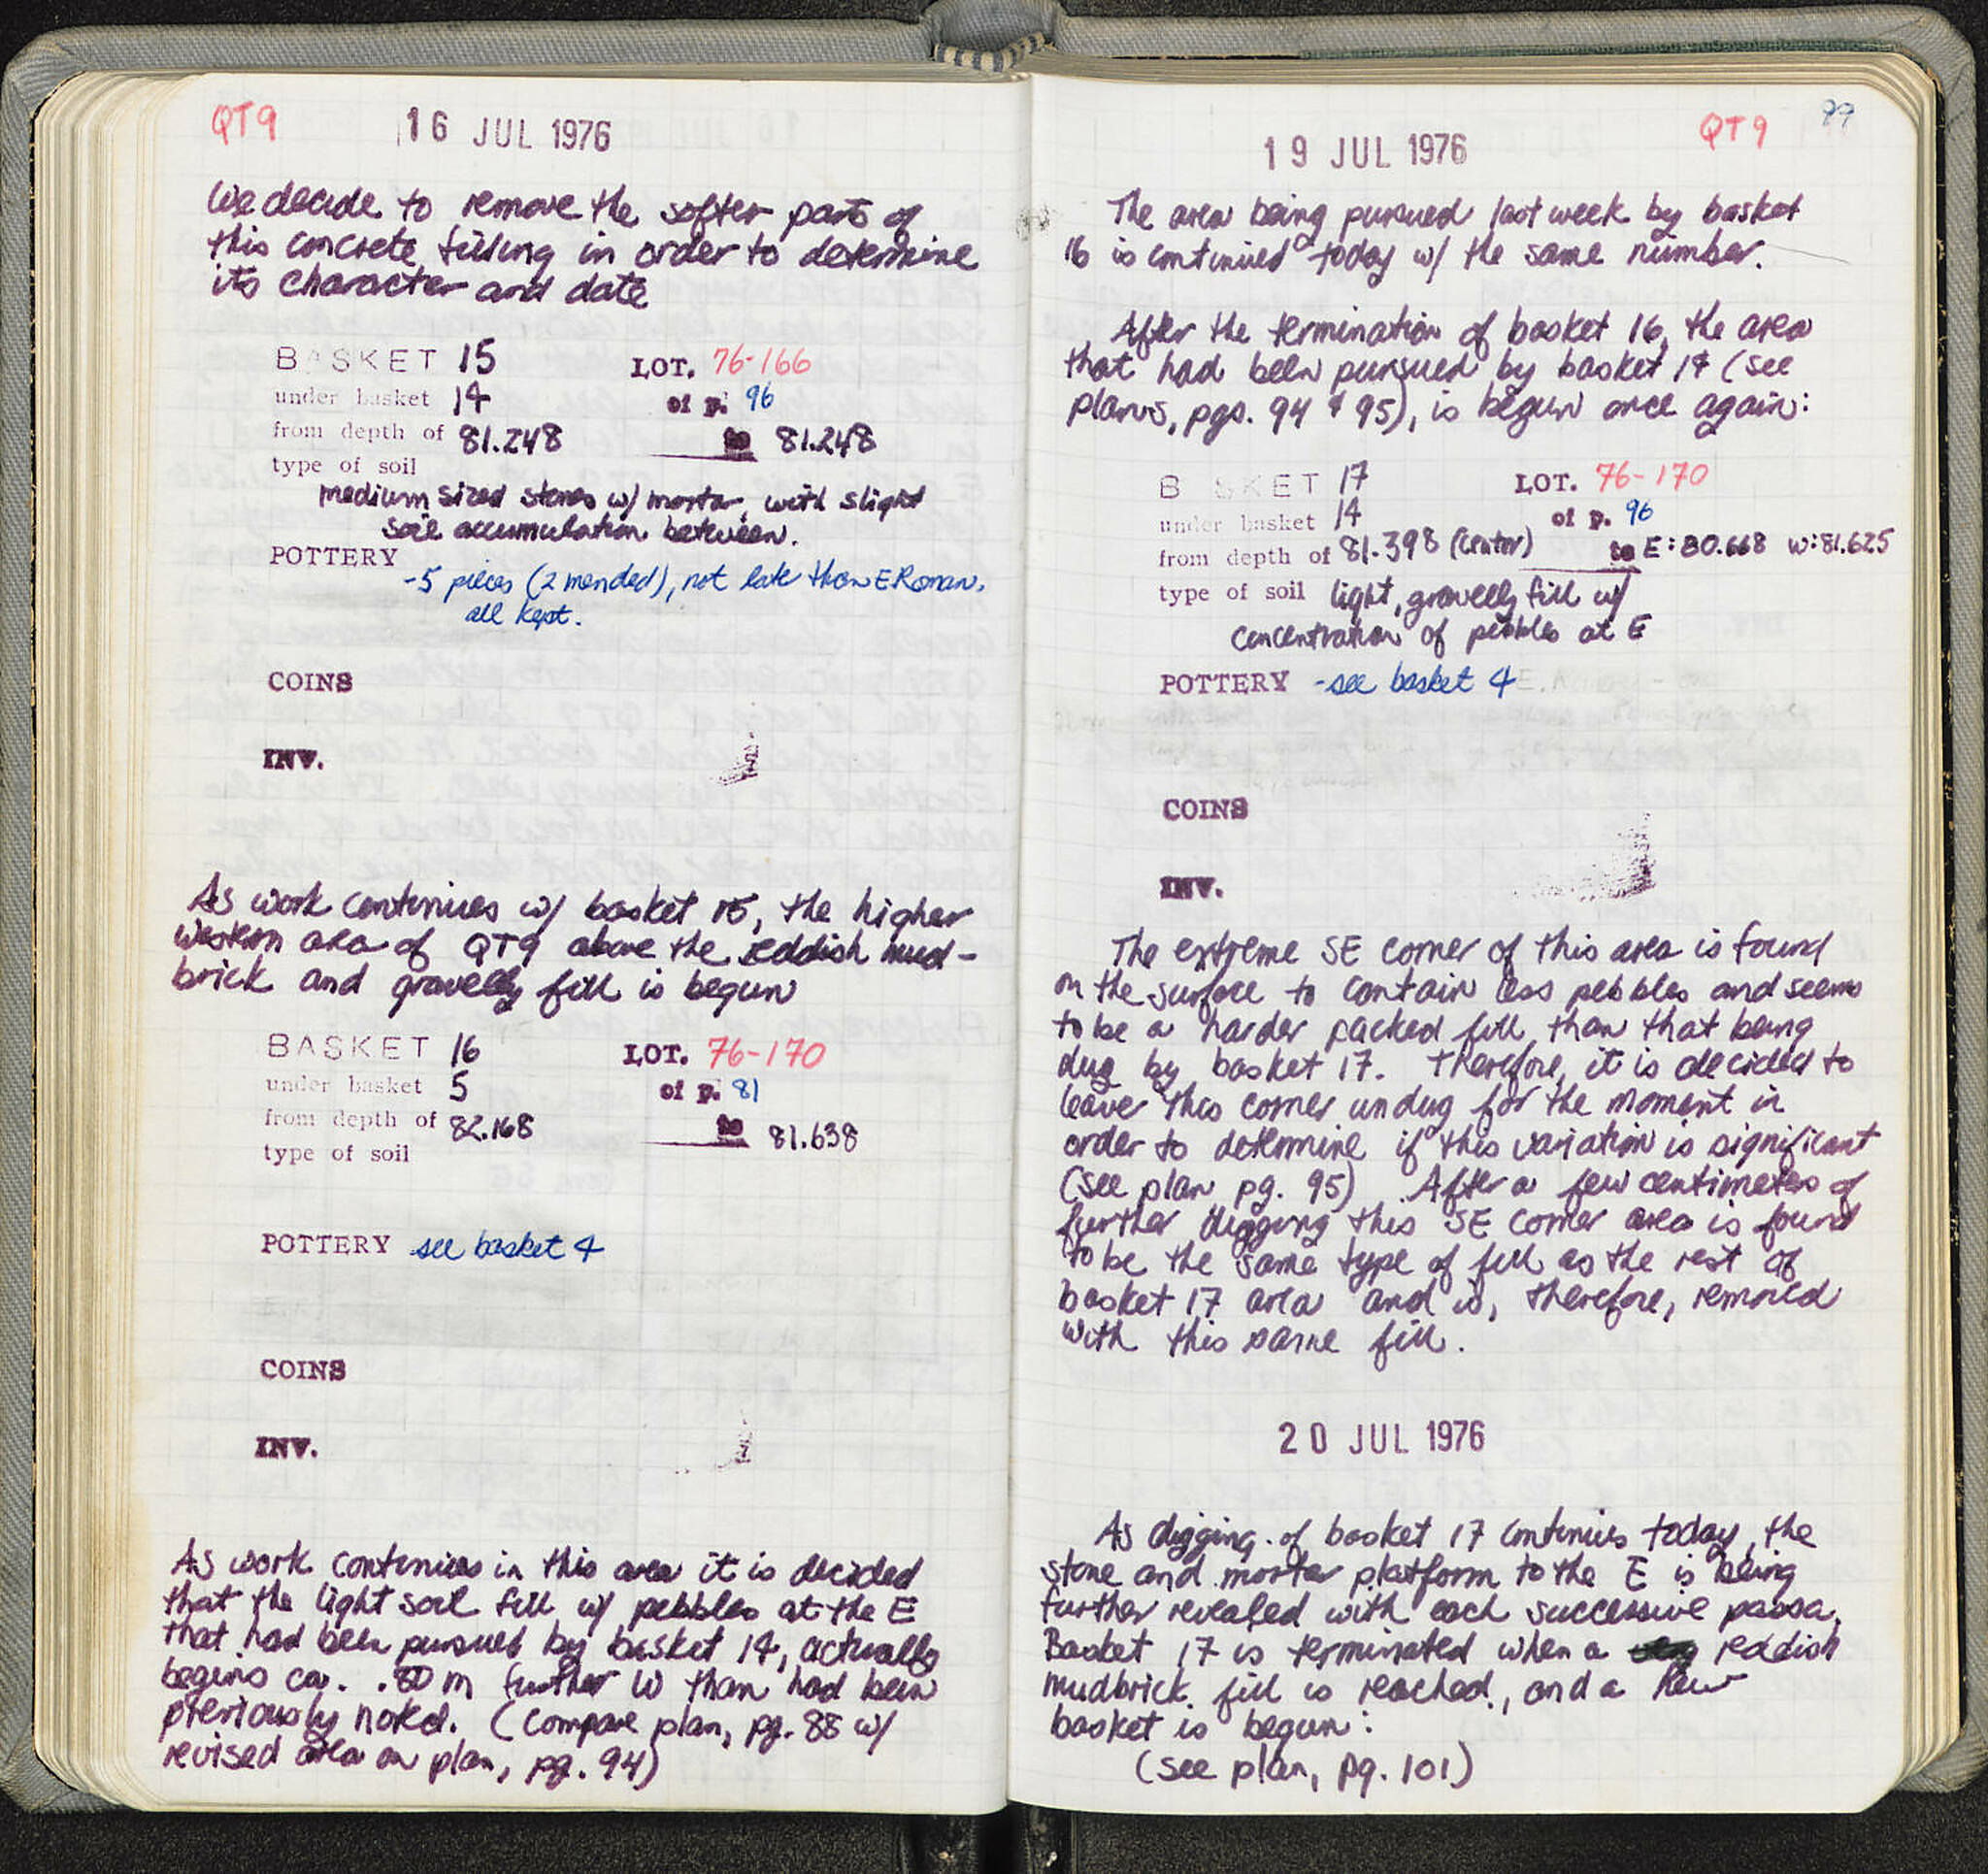 QT9 16 JUL 1976
We decide to remove the softer parts of
this concrete filling in order to determine
its character and date
BASKET 15 LOT. 76-166
under basket 14 of p. 96
from depth of 81.248 to 81.248
type of soil
medium sized stones w/ mortar, with slight
soil accumulation between.
POTTERY
-5 pieces (2 mended), not late than E Roman.
all kept.
COINS
INV.
As work continues w/ basket 15, the higher
western area of QT9 above the reddish mud-
brick and gravelly fill is begun
BASKET 16 LOT. 76-170
under basket 5 of p. 81
from depth of 82.168 to 81.638
type of soil
POTTERY see basket 4
COINS
INV.
As work continues in this area it is decided
that the light soil fill w/ pebbles at the E
that had been pursued by basket 14, actually
begins ca. .80 m further W than had been
previously noted. (Compare plan, pg. 88 w/
revised area on plan, pg. 94)
QT9 99
19 JUL 1976
The area being pursued last week by basket
16 is continued today w/ the same number.
After the termination of basket 16, the area
that had been pursued by basket 14 (see
plans, pgs. 94 & 95), is begun once again:
B SKET 17 LOT. 76-170
under basket 14 of p. 96
from depth of 81.398 (center) to E: 80.668 W: 81.625
type of soil light, gravelly fill w/
concentration of pebbles at E
POTTERY -see basket 4
COINS
INV.
The extreme SE corner of this area is found
on the surface to contain less pebbles and seems
to be a harder packed fill, than that being
dug by basket 17. Therefore, it is decided to
leave this corner undug for the moment in
order to determine if this variation is significant
(see plan pg. 95). After a few centimeters of
further digging this SE corner area is found
to be the same type of fill as the rest of
basket 17 area and is, therefore, removed
with this same fill.
20 JUL 1976
As digging of basket 17 continues today, the
stone and mortar platform to the E is being
further revealed with each successive passa.
Basket 17 is terminated when a reddish
mudbrick fill is reached, and a new
basket is begun:
(see plan, pg. 101)